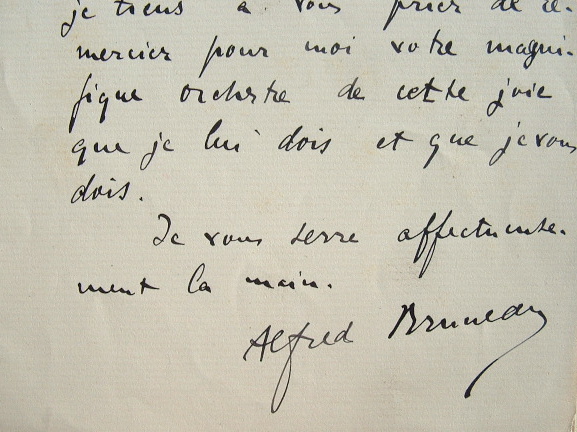 je tiens à vous prier de re-
mercier pour moi votre magni-
fique orchestre de cette joie
que je lui dois et que je vous
dois.
Je vous serre affectueuse-
ment la main.
Alfred Bruneau